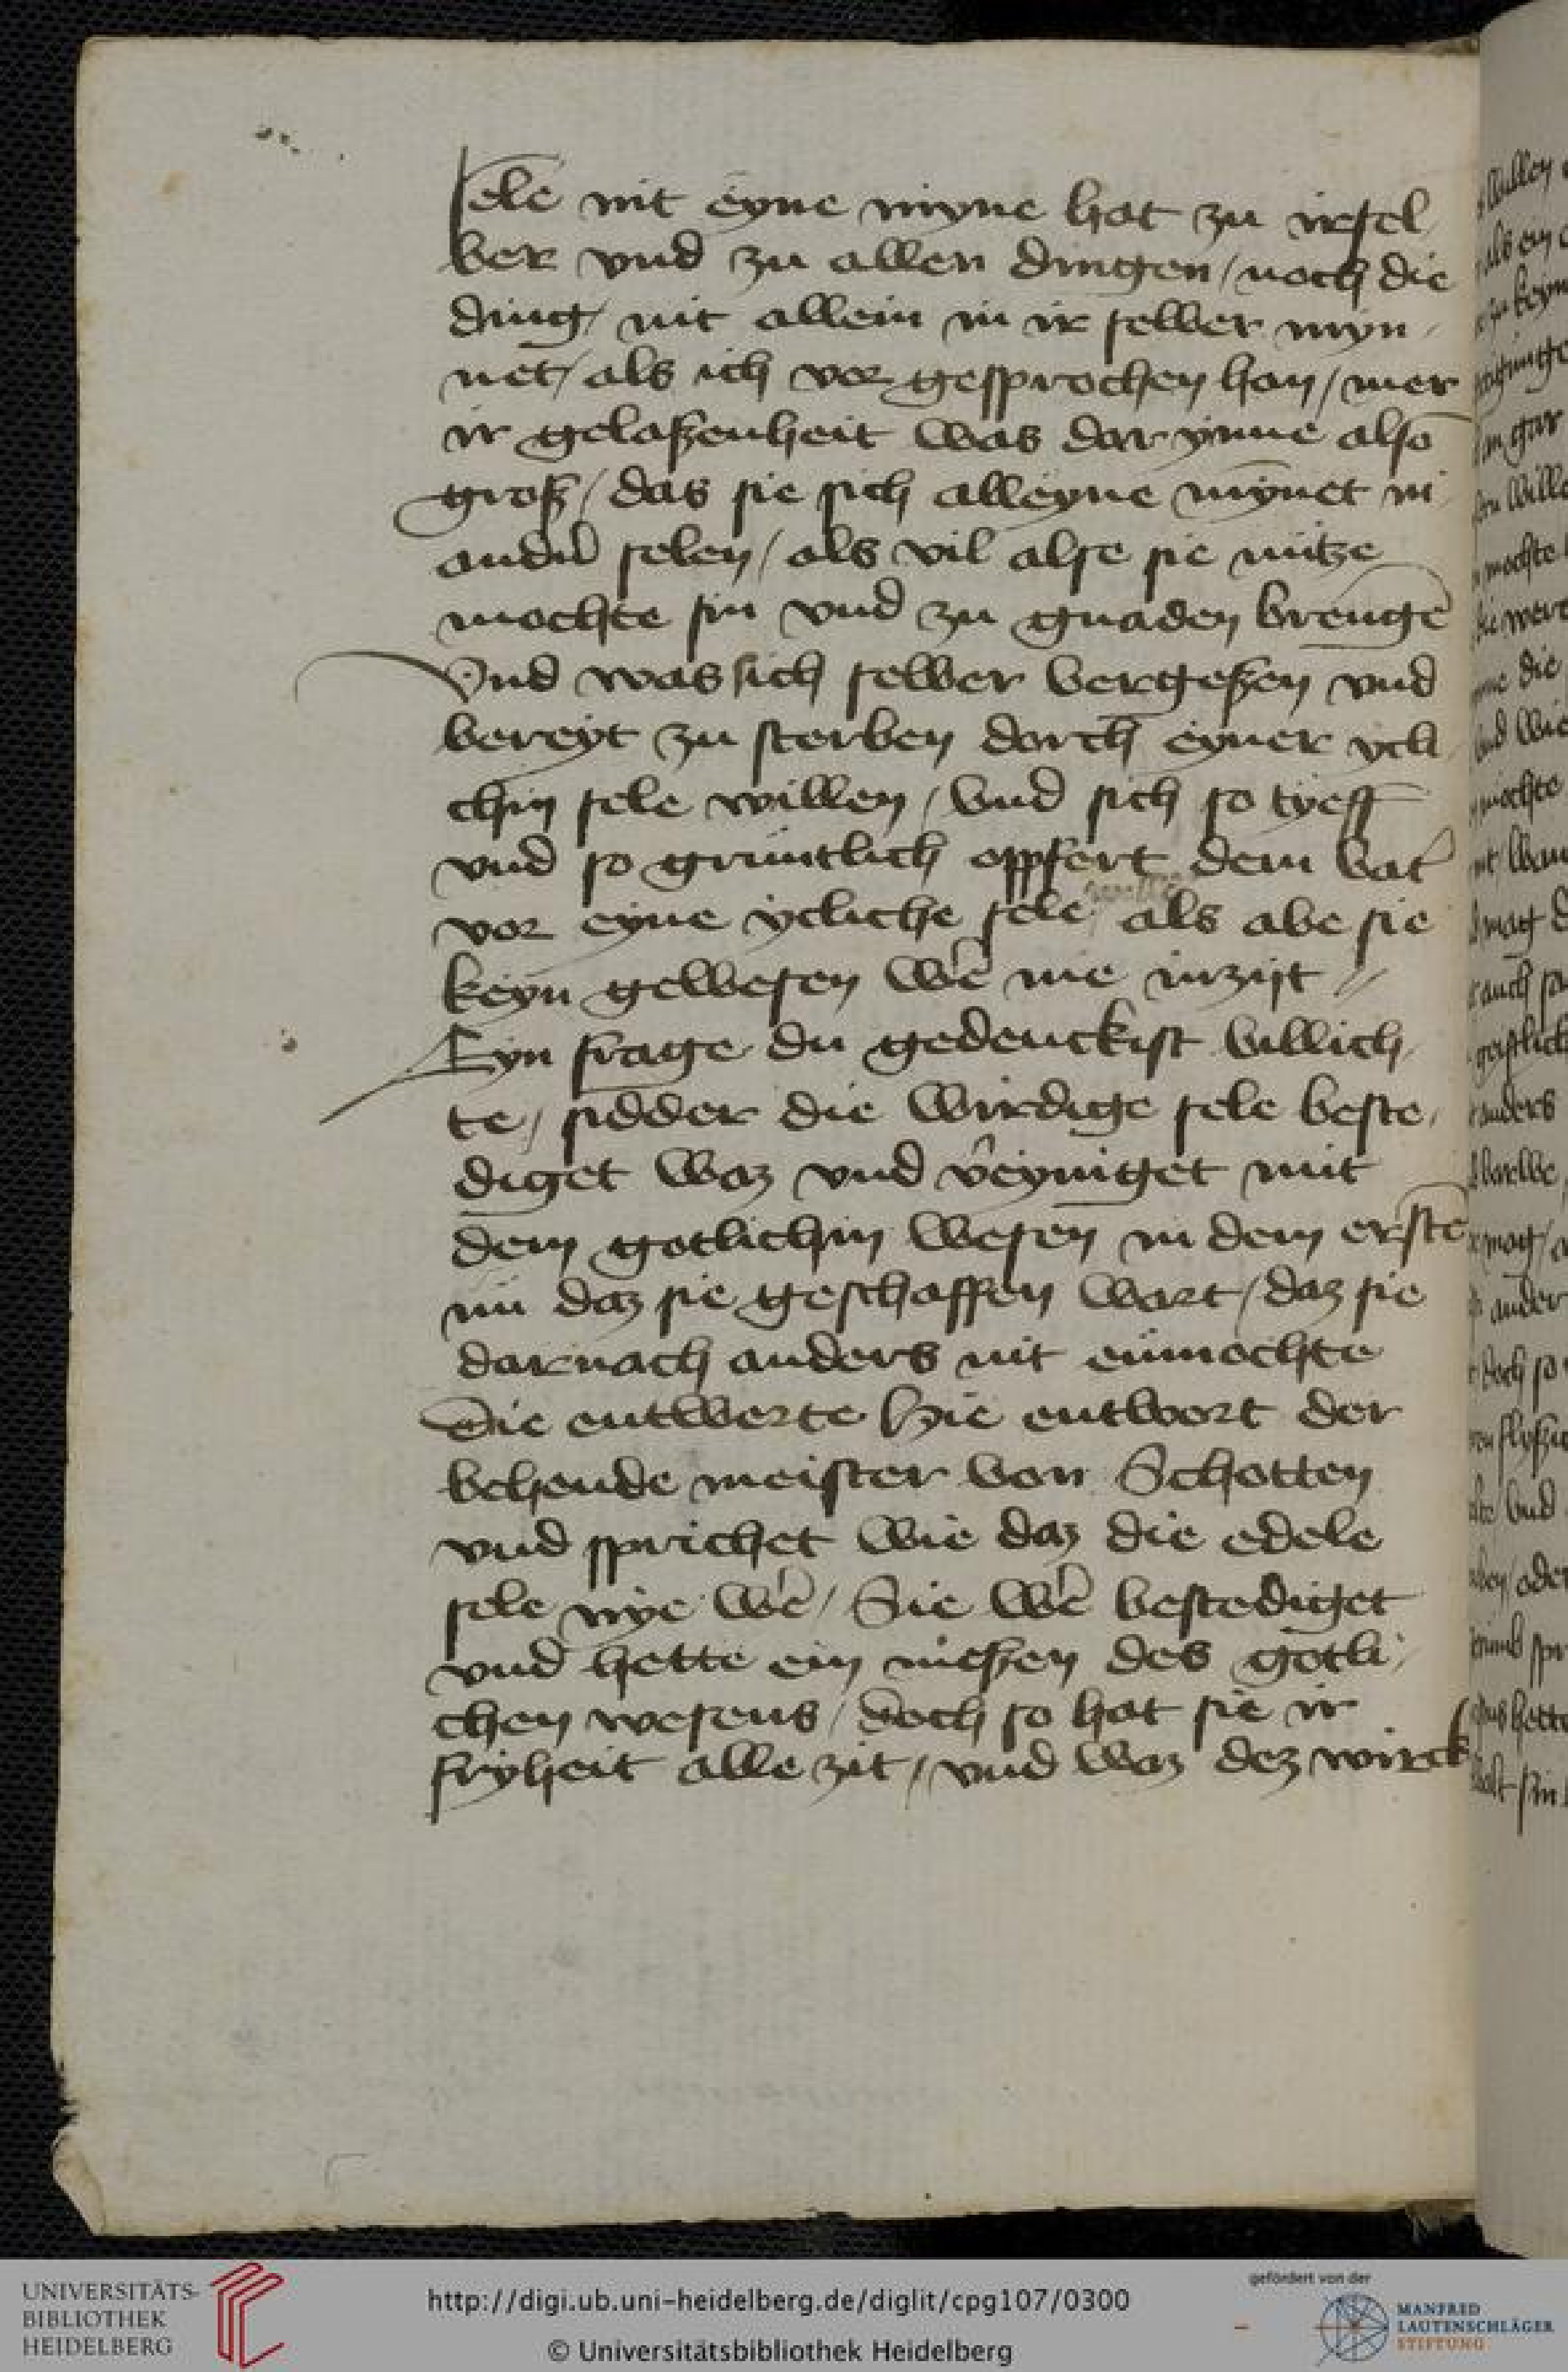 sele nit eyne myne hat zu irsel
ber vnd zu allen dingen / noch die
ding / nit allein in ir selber myn
net / als ich vor gesprochen han / mer
ir gelaßenheit was dar ynne also
groß / das sie sich alleyne mynet in
selen / als vil alse sie nütze
mochte sin vnd zu gnaden brengē
Vnd was sich selber vergeßen vnd
bereyt zu sterben dorch eyner ycli
chin sele willen / vnd sich so tyeff
vnd so gruntlich oppfert dem vat̉
vor eyne ycliche sele als abe sie
keyn gewesen we᷑ nie inzijt //
Eyn frage du gedenckist villich
te / sidder die wirdige sele beste
diget waz vnd v᷑eyniget mit
dem gotlichin wesen in dem erstē
nü daz sie geschaffen wart / daz sie
darnach anders nit enmochte
Die entwerte Hie entwort der
behende meister von Schotten
vnd sprichet wie daz die edele
sele nye we᷑ / Sie we᷑ bestediget
vnd hette ein nießen des gotli
chen wesens / doch so hat sie ir
fryheit alle zit / vnd waz dez wirck
UNIVERSITÄTS-
BIBLIOTHEK
HEIDELBERG
http://digi.ub.uni-heidelberg.de/diglit/cpg107/0300
© Universitätsbibliothek Heidelberg
gefördert von der
MANFRED
LAUTENSCHLÄGER
STIFTUNG